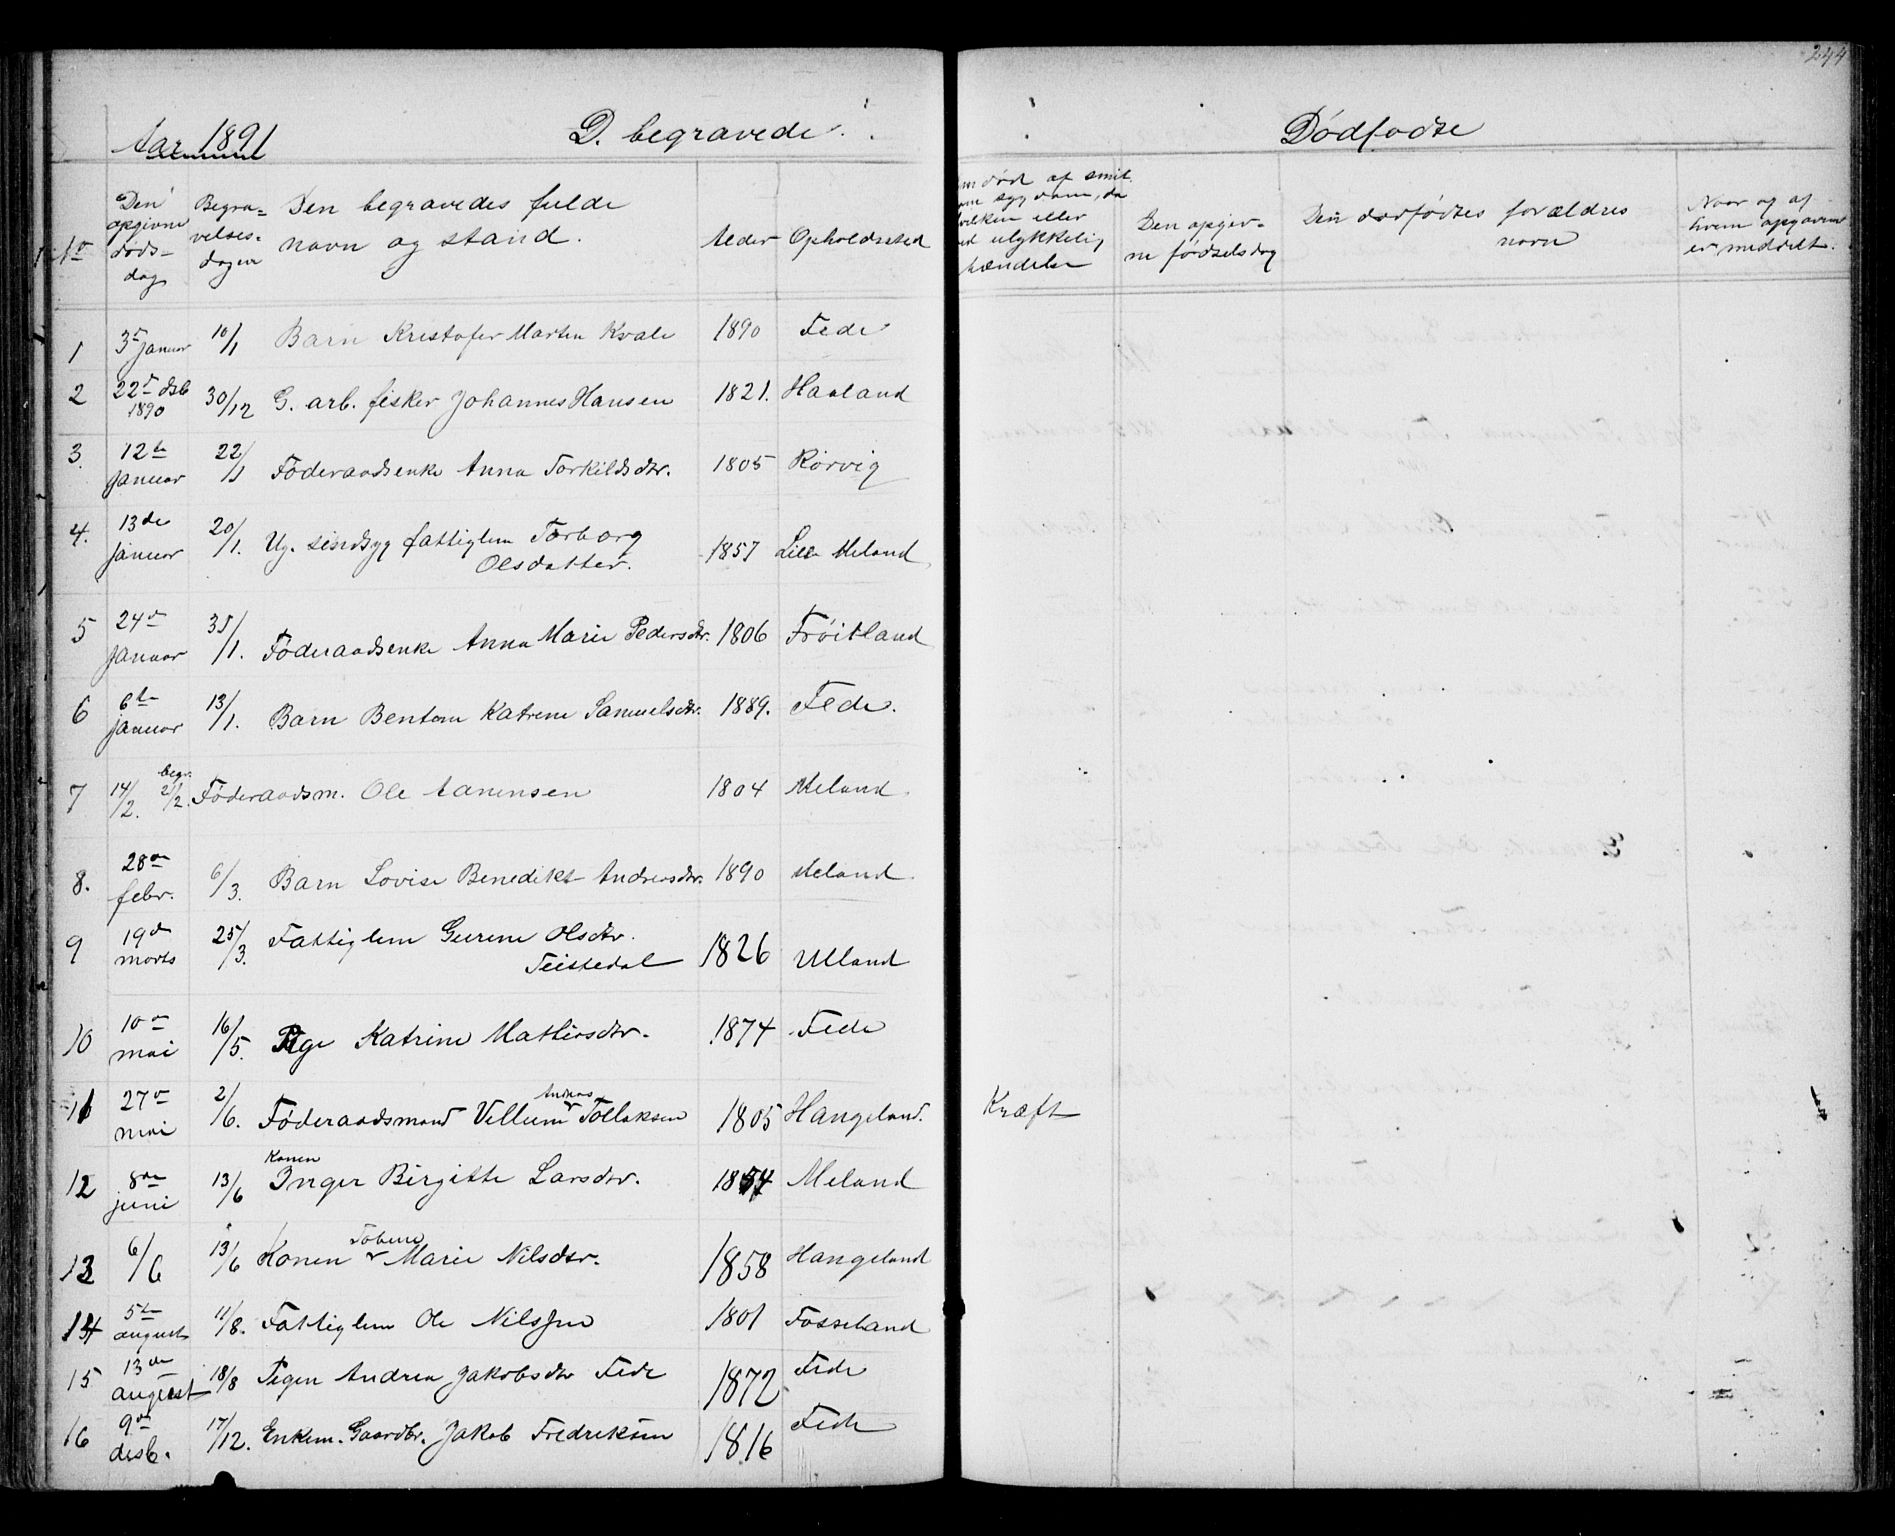 244
Aar 1891
D. begravede.
Dødfødte
No
Den opgivne døds-dag
Begra-velses-dagen
Den begravedes fulde navn og stand.
Alder
Opholdssted
død af smit. sygdom, da hvilken eller ved ulykkelig hændelse
Den opgiv-ne fødselsdag
Den dødfødtes forældres navn
Naar og af hvem opgaven er meddelt.
1 3de januar 10/1 Barn Kristofer Martin Kvale 1890 Fede
2 22de dsb 1890 30/12 G. arb. fisker Johannes Hansen 1821. Haaland
3. 12te januar 22/1 Føderaadsenke Anna Torkildsdtr. 1805 Rørvig
4. 13de januar 20/1. Ug. sindsyg fattiglem Torborg Olsdatter. 1857 Lille Meland
5 24de januar 31/1. Føderaadsenke Anna Marie Pedersdtr. 1806 Frøitland
6 6te januar 13/1. Barn Bentone Katrine Samuelsdtr. 1889. Fede.
7 14/2. begr. 2/2. Føderaadsm. Ole Aanensen 1804 Meland.
8. 28de febr. 6/3. Barn Lovise Benedikt Andreasdtr. 1890 Meland
9 19de marts 25/3. Fattiglem Gurine Olsdtr. Teistedal 1826 Ulland
10 10de mai 16/5. Pige Katrine Mathiasdtr. 1874 Fede
11 27de mai 2/6. Føderaadsmand Villum Andreas Tollaksen 1805 Hangeland. Kræft
12 8de juni 13/6 Konen Inger Birgitte Larsdtr. 1854 Meland
13 6/6 13/6 Konen Tobine Marie Nilsdtr. 1858 Hangeland
14 5te august 11/8. Fattiglem Ole Nilssen 1801 Fosseland
15. 13de august 18/8 Pigen Andrea Jakobsdtr Fede 1872 Fede
16 9de desb. 17/12. Enkem. Gaardbr. Jakob Fredriksen 1816 Fede